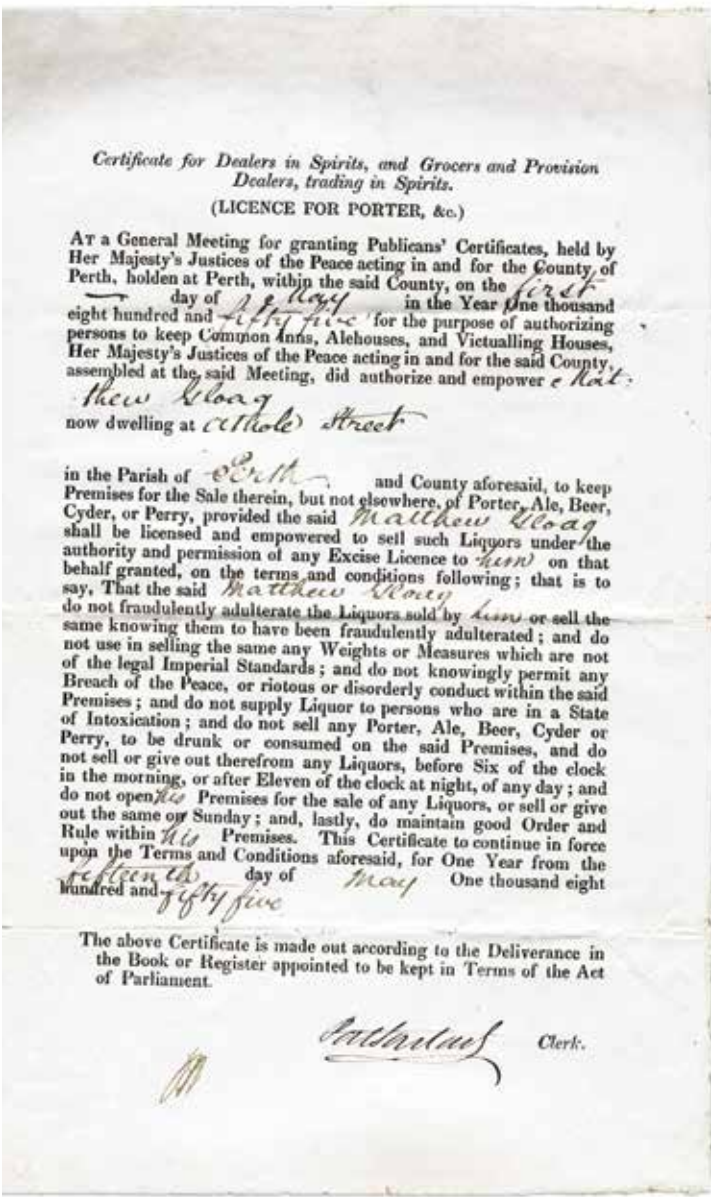 Certificate for Dealers in Spirits, and Grocers and Provision
Dealers, trading in Spirits.
(LICENCE FOR PORTER, &c.)
AT a General Meeting for granting Publicans' Certificates, held by
Her Majesty's Justices of the Peace acting in and for the County of
Perth, holden at Perth, within the said County, on the first
day of May in the Year One thousand
eight hundred and fifty five for the purpose of authorizing
persons to keep Common Inns, Alehouses, and Victualling Houses,
Her Majesty's Justices of the Peace acting in and for the said County,
assembled at the said Meeting, did authorize and empower Mat:
thew Gloag
now dwelling at Athole Street
in the Parish of Perth and County aforesaid, to keep
Premises for the Sale therein, but not elsewhere, of Porter, Ale, Beer,
Cyder, or Perry, provided the said Matthew Gloag
shall be licensed and empowered to sell such Liquors under the
authority and permission of any Excise Licence to him on that
behalf granted, on the terms and conditions following; that is to
say, That the said Matthew Gloag
do not fraudulently adulterate the Liquors sold by him or sell the
same knowing them to have been fraudulently adulterated; and do
not use in selling the same any Weights or Measures which are not
of the legal Imperial Standards; and do not knowingly permit any
Breach of the Peace, or riotous or disorderly conduct within the said
Premises; and do not supply Liquor to persons who are in a State
of Intoxication; and do not sell any Porter, Ale, Beer, Cyder or
Perry, to be drunk or consumed on the said Premises, and do
not sell or give out therefrom any Liquors, before Six of the clock
in the morning, or after Eleven of the clock at night, of any day; and
do not open his Premises for the sale of any Liquors, or sell or give
out the same on Sunday; and, lastly, do maintain good Order and
Rule within his Premises. This Certificate to continue in force
upon the Terms and Conditions aforesaid, for One Year from the
fifteenth day of May One thousand eight
hundred and fifty five
The above Certificate is made out according to the Deliverance in
the Book or Register appointed to be kept in Terms of the Act
of Parliament.
Clerk.